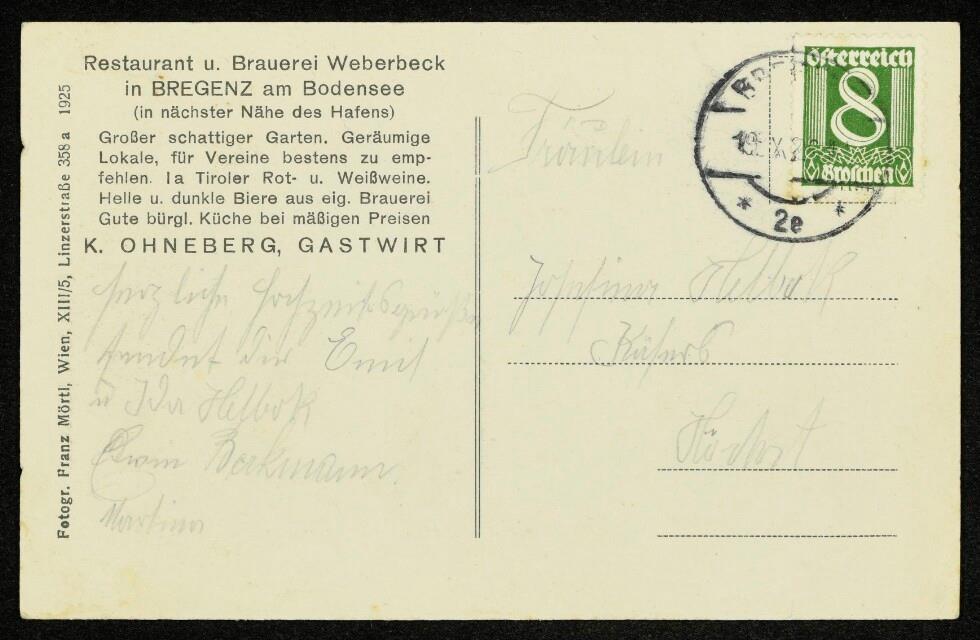 Restaurant u. Brauerei Weberbeck
in BREGENZ am Bodensee
(in nächster Nähe des Hafens)
Großer schattiger Garten. Geräumige
Lokale, für Vereine bestens zu emp-
fehlen. Ia Tiroler Rot- u. Weißweine.
Helle u. dunkle Biere aus eig. Brauerei
Gute bürgl. Küche bei mäßigen Preisen
K. OHNEBERG, GASTWIRT
Fotogr. Franz Mörtl, Wien, XIII/5, Linzerstraße 358 a 1925
herzliche Hochzeitsgrüße
sendet dir Emil
u Ida Helbok
Beckmann
Martina
Österreich
8
Groschen
* 2e *
Fräulein
Josefine Helbok
Höchst